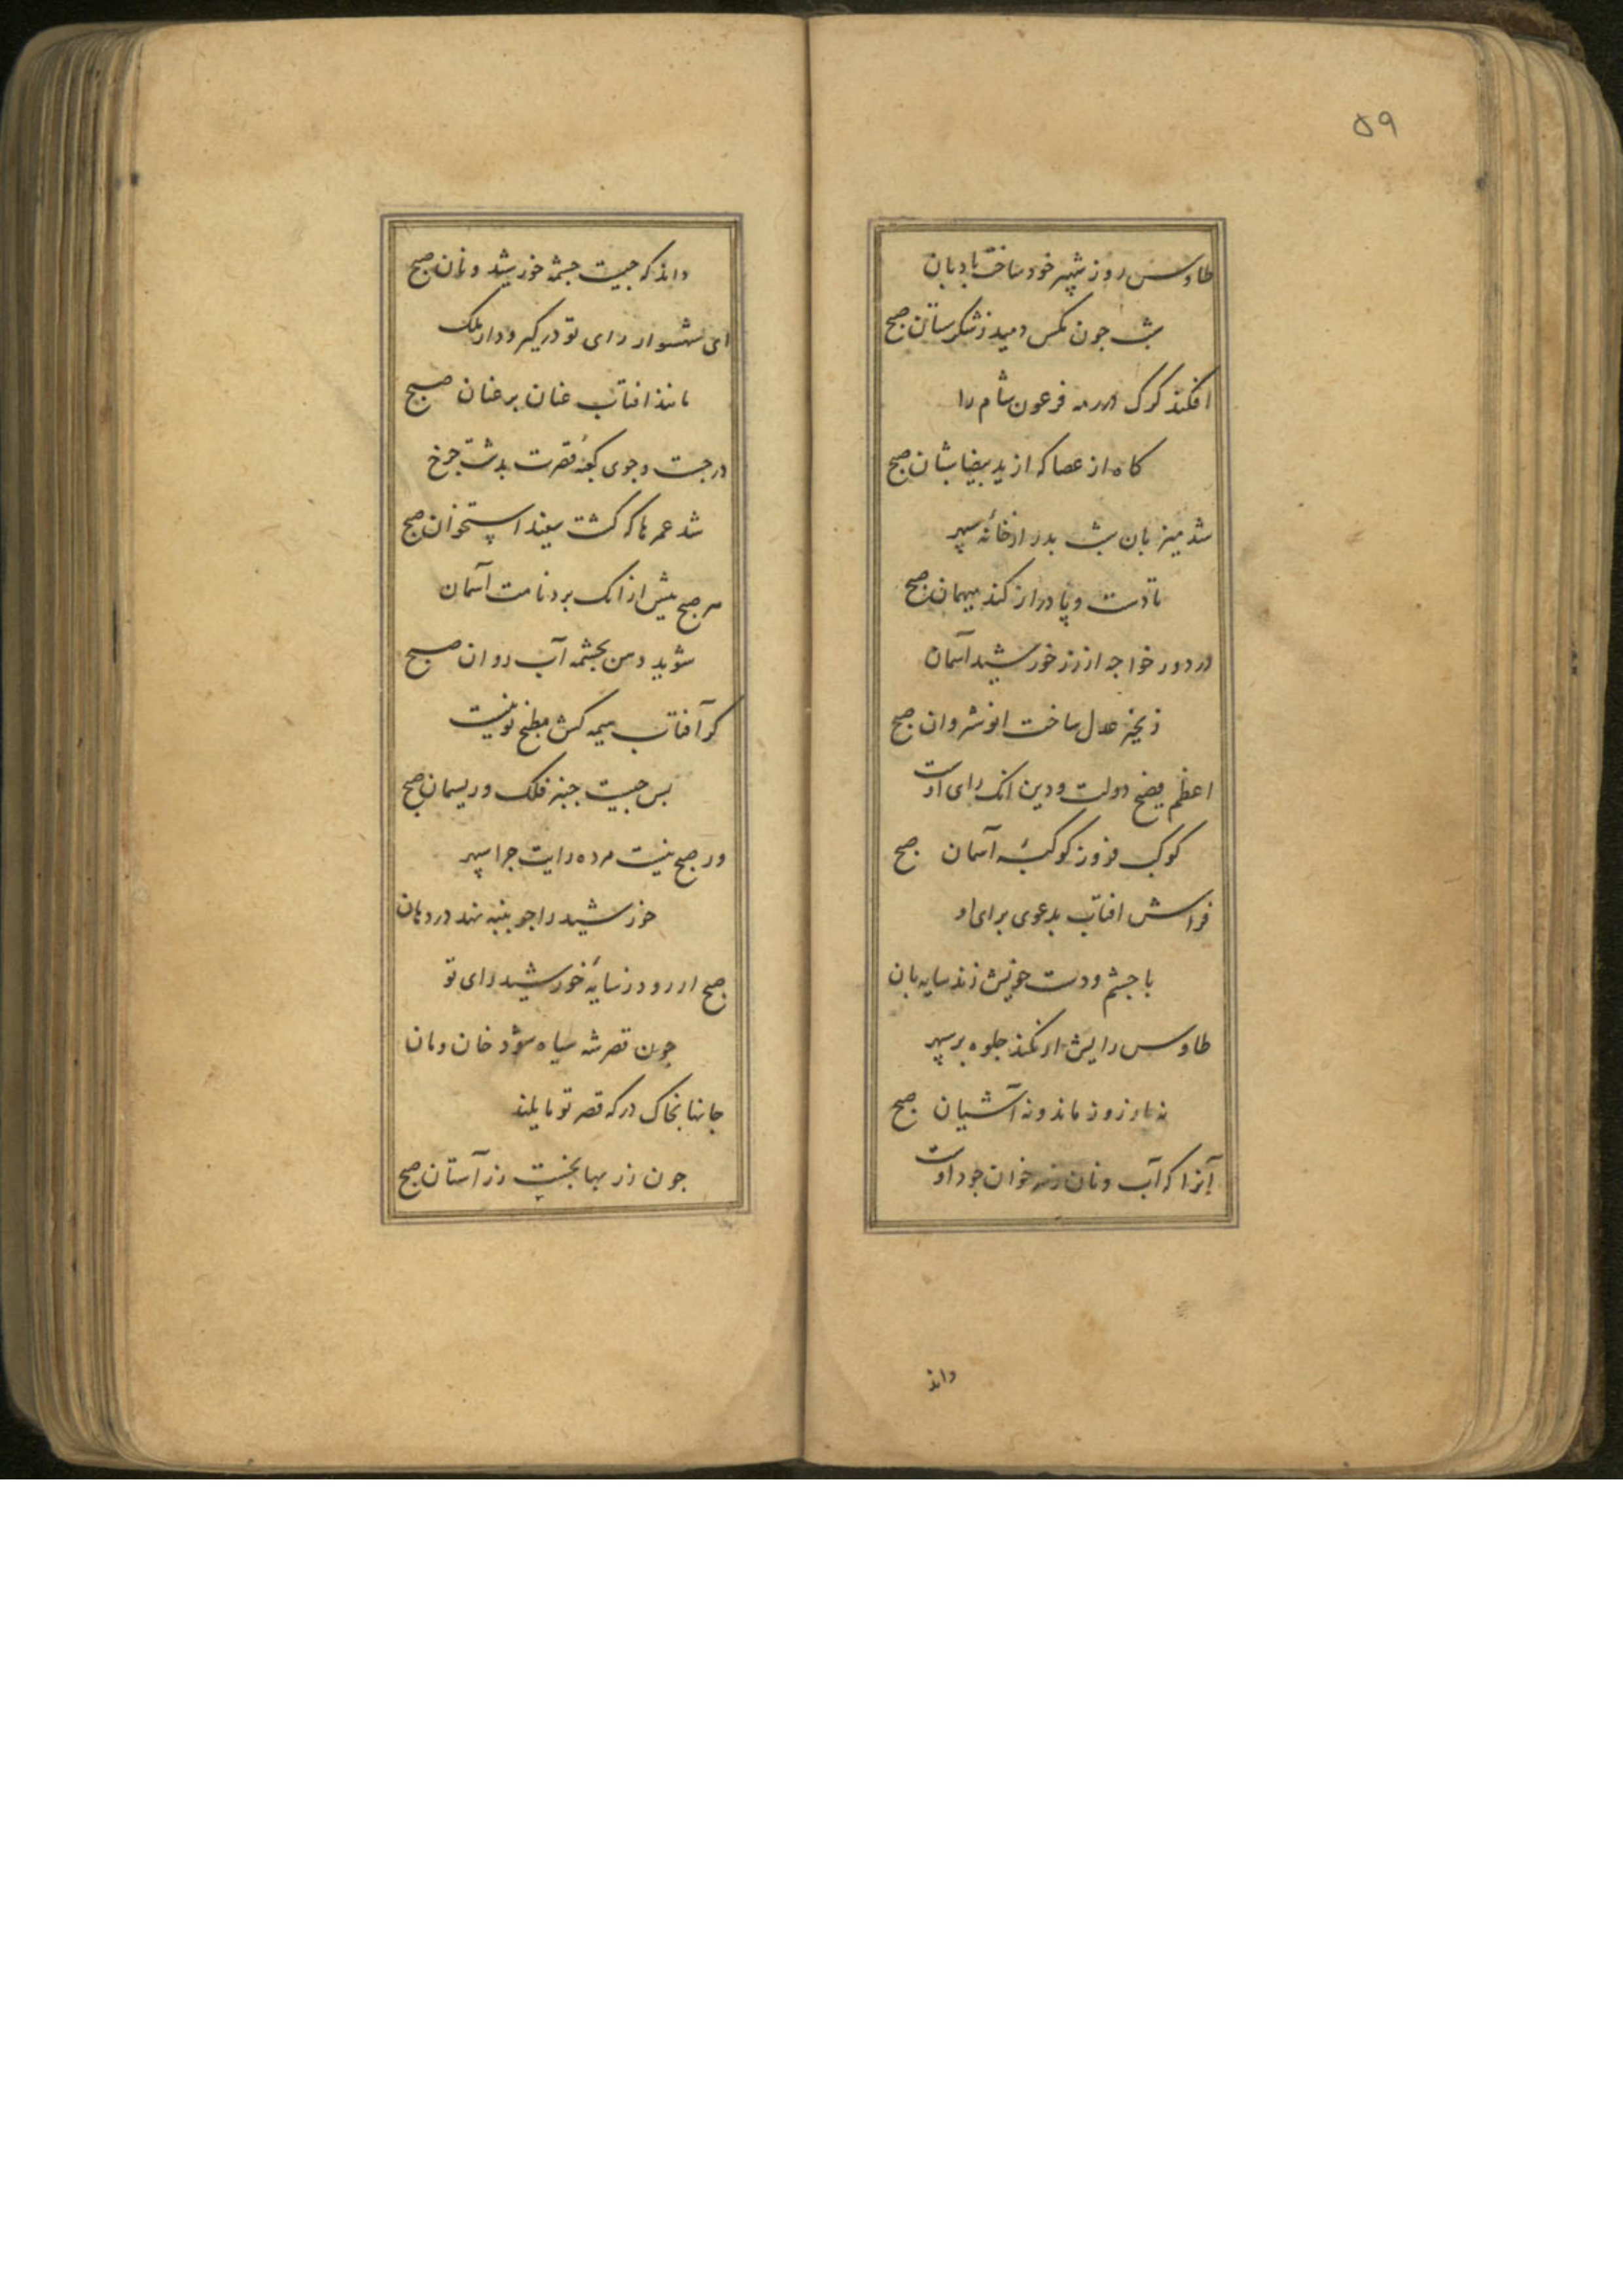 ۵۹
طاوس روز شهپر خود ساخت بادبان
شب جون مکس دمید زشکرستان صبح
افکند کرک در رمه فرعون شام را
کاه از عصا که از ید بیضا شبان صبح
شد میزبان شب بدر از خانهٔ سپهر
تا دست و پا دراز کند میهمان صبح
در دور خواجه از زر خورشید آسمان
زنجیر عدل ساخت انوشروان صبح
اعظم دولت و دین انک رای اوست
کوکب فروز کوکبهٔ آسمان صبح
فراش افتاب بدعوی برای او
با جشم و دست خویش زند سایه بان
طاوس رایش ار نکند جلوه بر سپهر
نه روز ماند و نه آشیان صبح
آنرا که آب و نان خوان جود اوست
داند
داند که جیست جشمهٔ خورشید و نان صبح
ای شهسوار رای تو در کیر و دار ملک
مانند افتاب عنان بر عنان صبح
در جست و جوی کعبهٔ قصرت بدشت جرخ
شد عمرها که کشت سپیذ استخوان صبح
هر صبح بیش از انک برد نامت آسمان
شوید دهن بجشمه آب روان صبح
کر آفتاب هیمه کش مطبخ تو نیست
بس جیست جنبر فلک و ریسمان صبح
ور صبح نیست مرده رایت جرا سپهر
خورشید را جو پنبه نهد در دهان
صبح ار رود ز سایهٔ خورشید رای تو
جون قصر شه سیاه شود خان ومان
جانها بخاک درکه قصر تو مایلند
جون زر بها بخشت زر آستان صبح